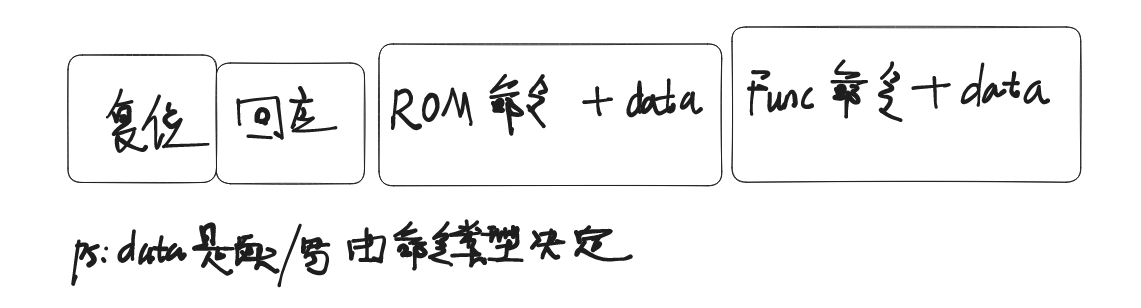 复位 回应 ROM 命令 + data Func 命令 + data
ps: data是读/写 由命令类型决定